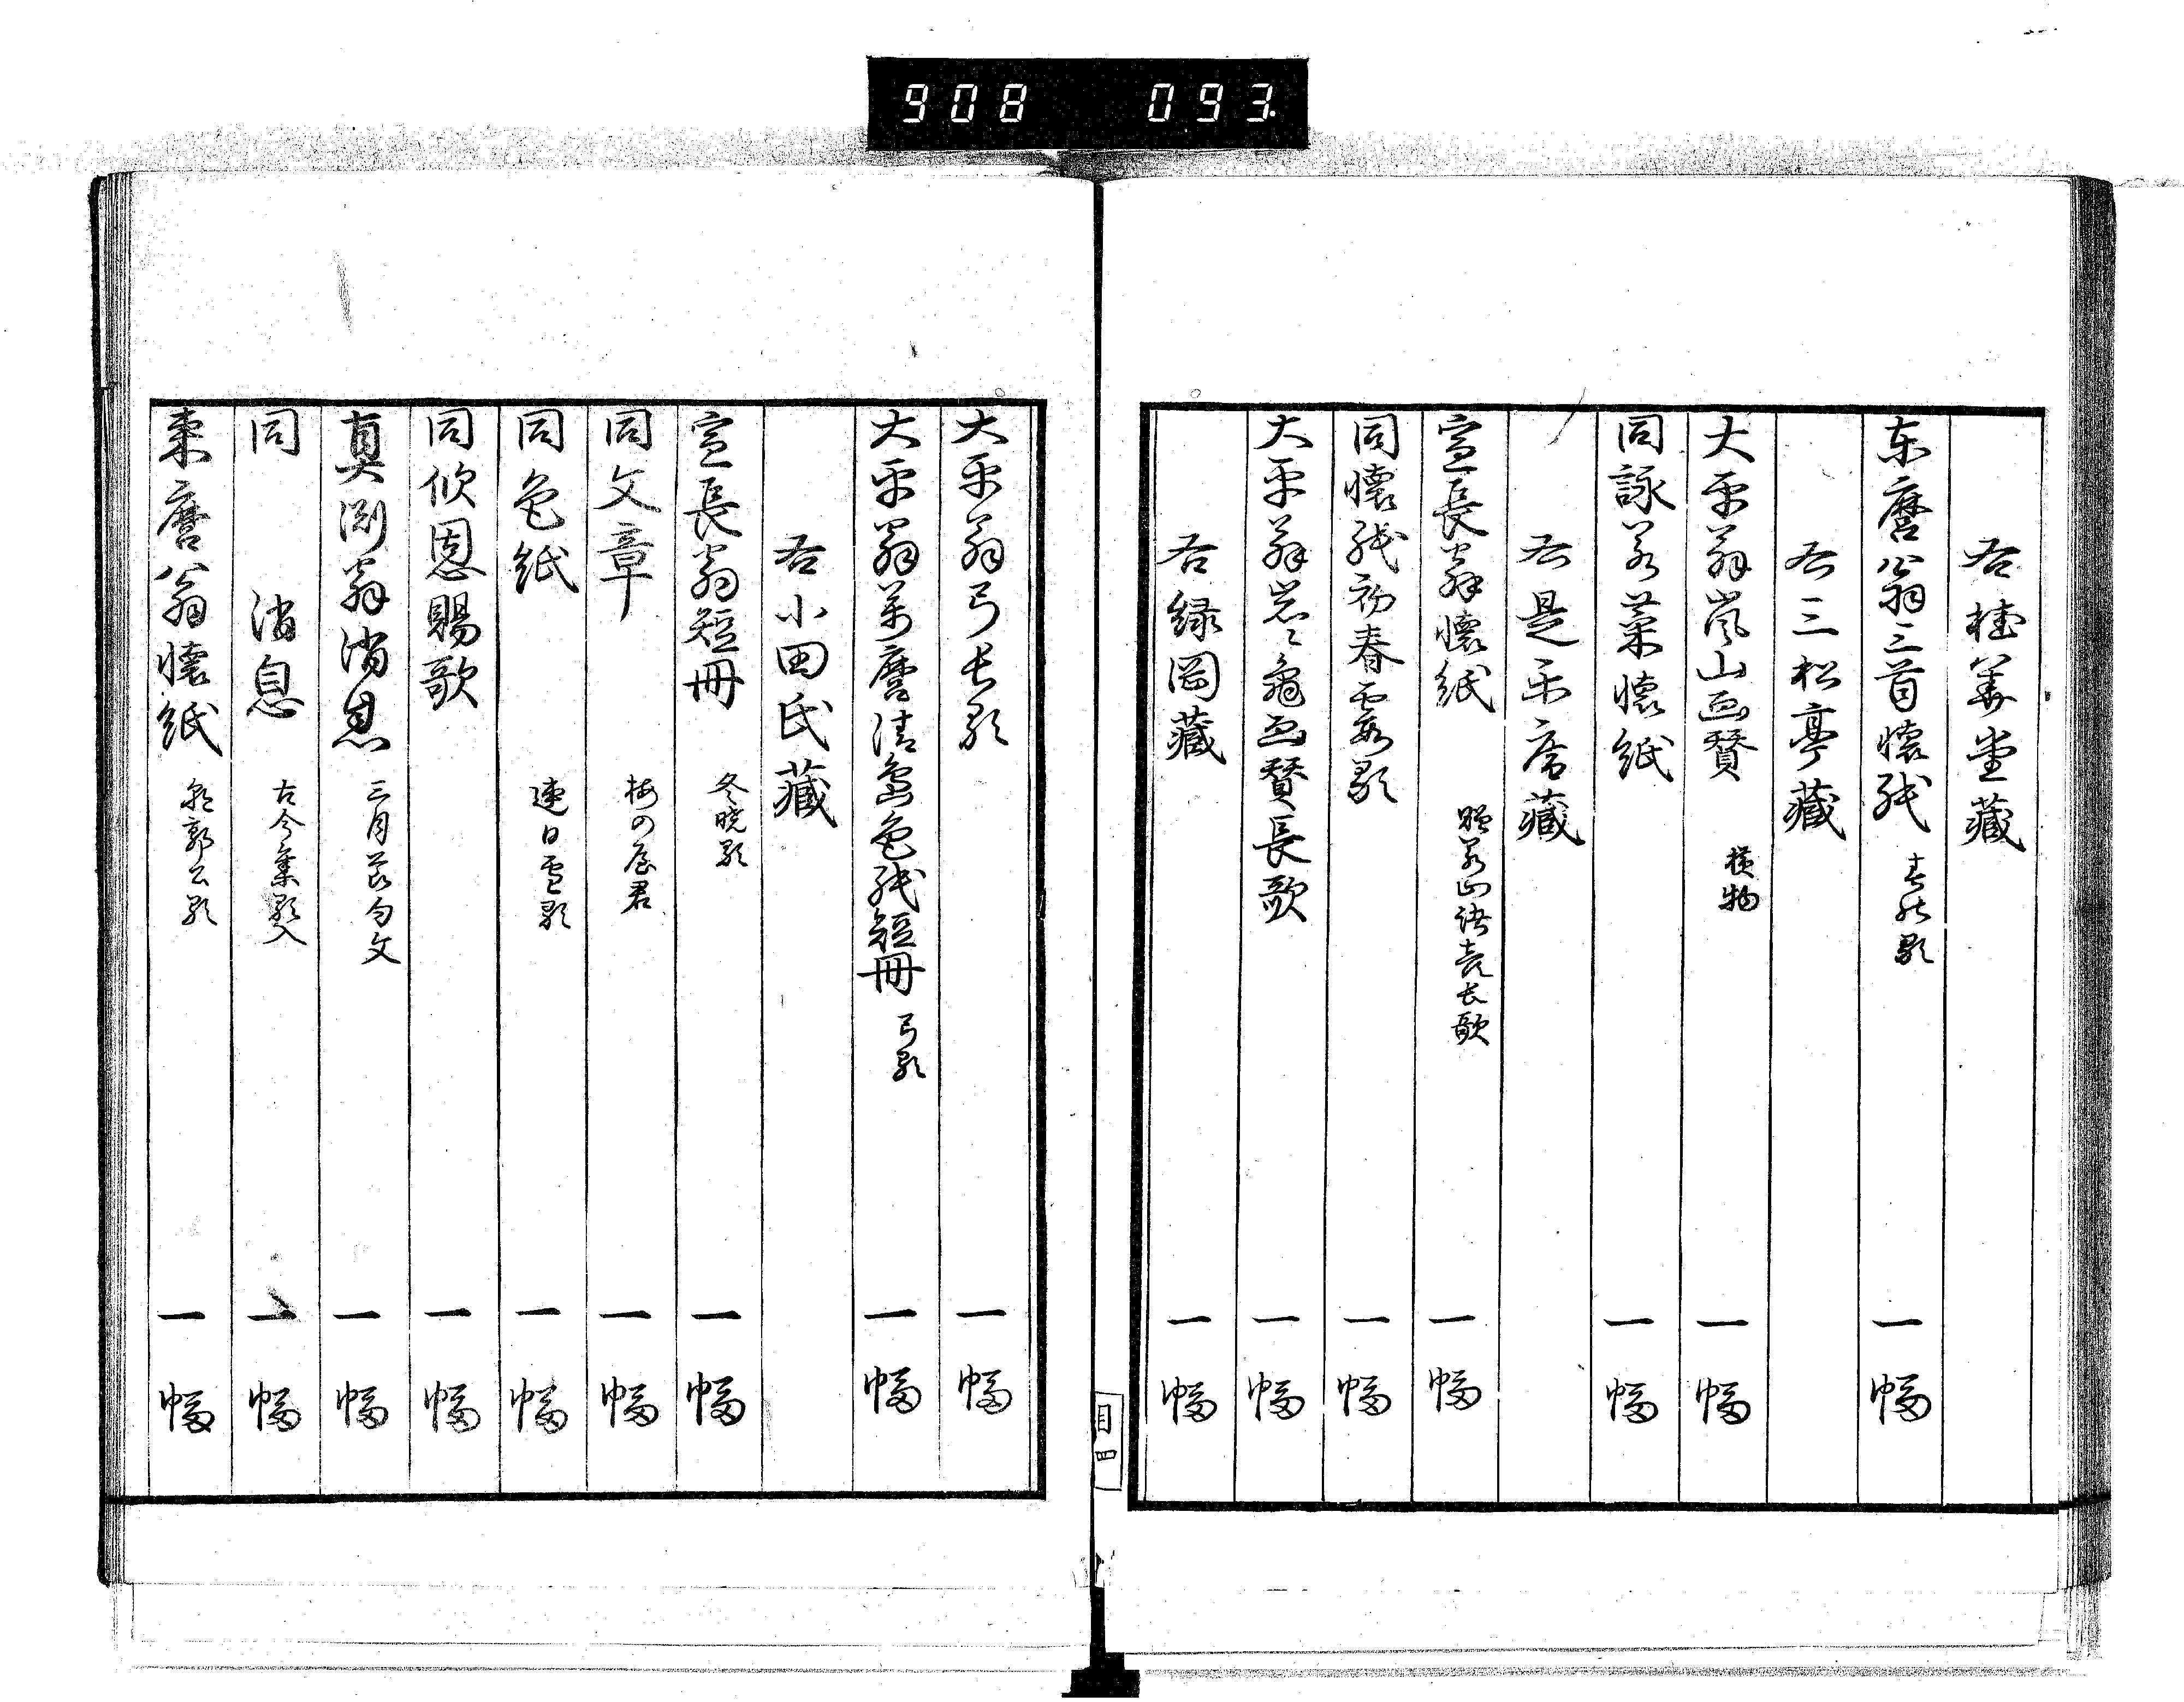 908 093.
右桂花堂藏
東麿翁三首懐紙 一幅
右三松亭藏
大平翁嵐山画賛 横物 一幅
同詠若菜懐紙 一幅
右是平席藏
宣長翁懐紙 贈若山諸 長歌 一幅
同懐紙初春霞歌 一幅
大平翁 亀画賛長歌 一幅
右緑岡藏 一幅
目四
大平翁弓長歌 一幅
大平翁萬麿清島色紙短冊 弓歌 一幅
右小田氏藏
宣長翁短冊 冬暁歌 一幅
同文章 梅の屋君 一幅
同色紙 連日雪歌 一幅
同 恩賜歌 一幅
真渕翁消息 三月 文 一幅
同 消息 古今集歌入 一幅
東麿翁懐紙 郭公歌 一幅